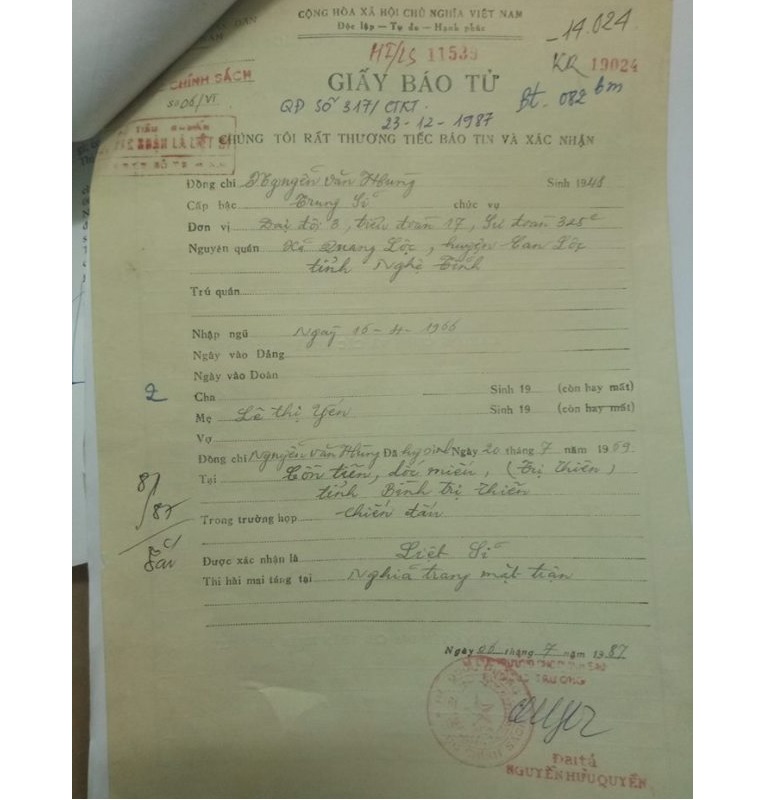 CỘNG HÒA XÃ HỘI CHỦ NGHĨA VIỆT NAM
Độc lập — Tự do — Hạnh phúc
14.024
HT/LS 11539
KR 19024
CHÍNH SÁCH
Số 06/VT
GIẤY BÁO TỬ
QĐ SỐ 317/CTCT.
23-12-1987
Bt. 082 bm
CHÚNG TÔI RẤT THƯƠNG TIẾC BÁO TIN VÀ XÁC NHẬN
Đồng chí Nguyễn Văn Hùng Sinh 1948
Cấp bậc Trung Sĩ chức vụ
Đơn vị Đại đội 3, tiểu đoàn 17, Sư đoàn 325c
Nguyên quán Xã Quang Lộc, huyện Can Lộc
tỉnh Nghệ Tĩnh
Trú quán
Nhập ngũ Ngày 16-4-1966
Ngày vào Đảng
Ngày vào Đoàn
2
Cha Sinh 19 (còn hay mất)
Mẹ Lê Thị Yến Sinh 19 (còn hay mất)
Vợ
Đồng chí Nguyễn Văn Hùng Đã hy sinh Ngày 20 tháng 7 năm 1969
Tại Cồn tiên, dốc miếu, (Trị Thiên)
tỉnh Bình Trị Thiên
81/87
Trong trường hợp chiến đấu
Được xác nhận là Liệt Sĩ
Thi hài mai táng tại Nghĩa trang mặt trận
Ngày 06 tháng 7 năm 1987
Đại tá
NGUYỄN HỮU QUYỀN